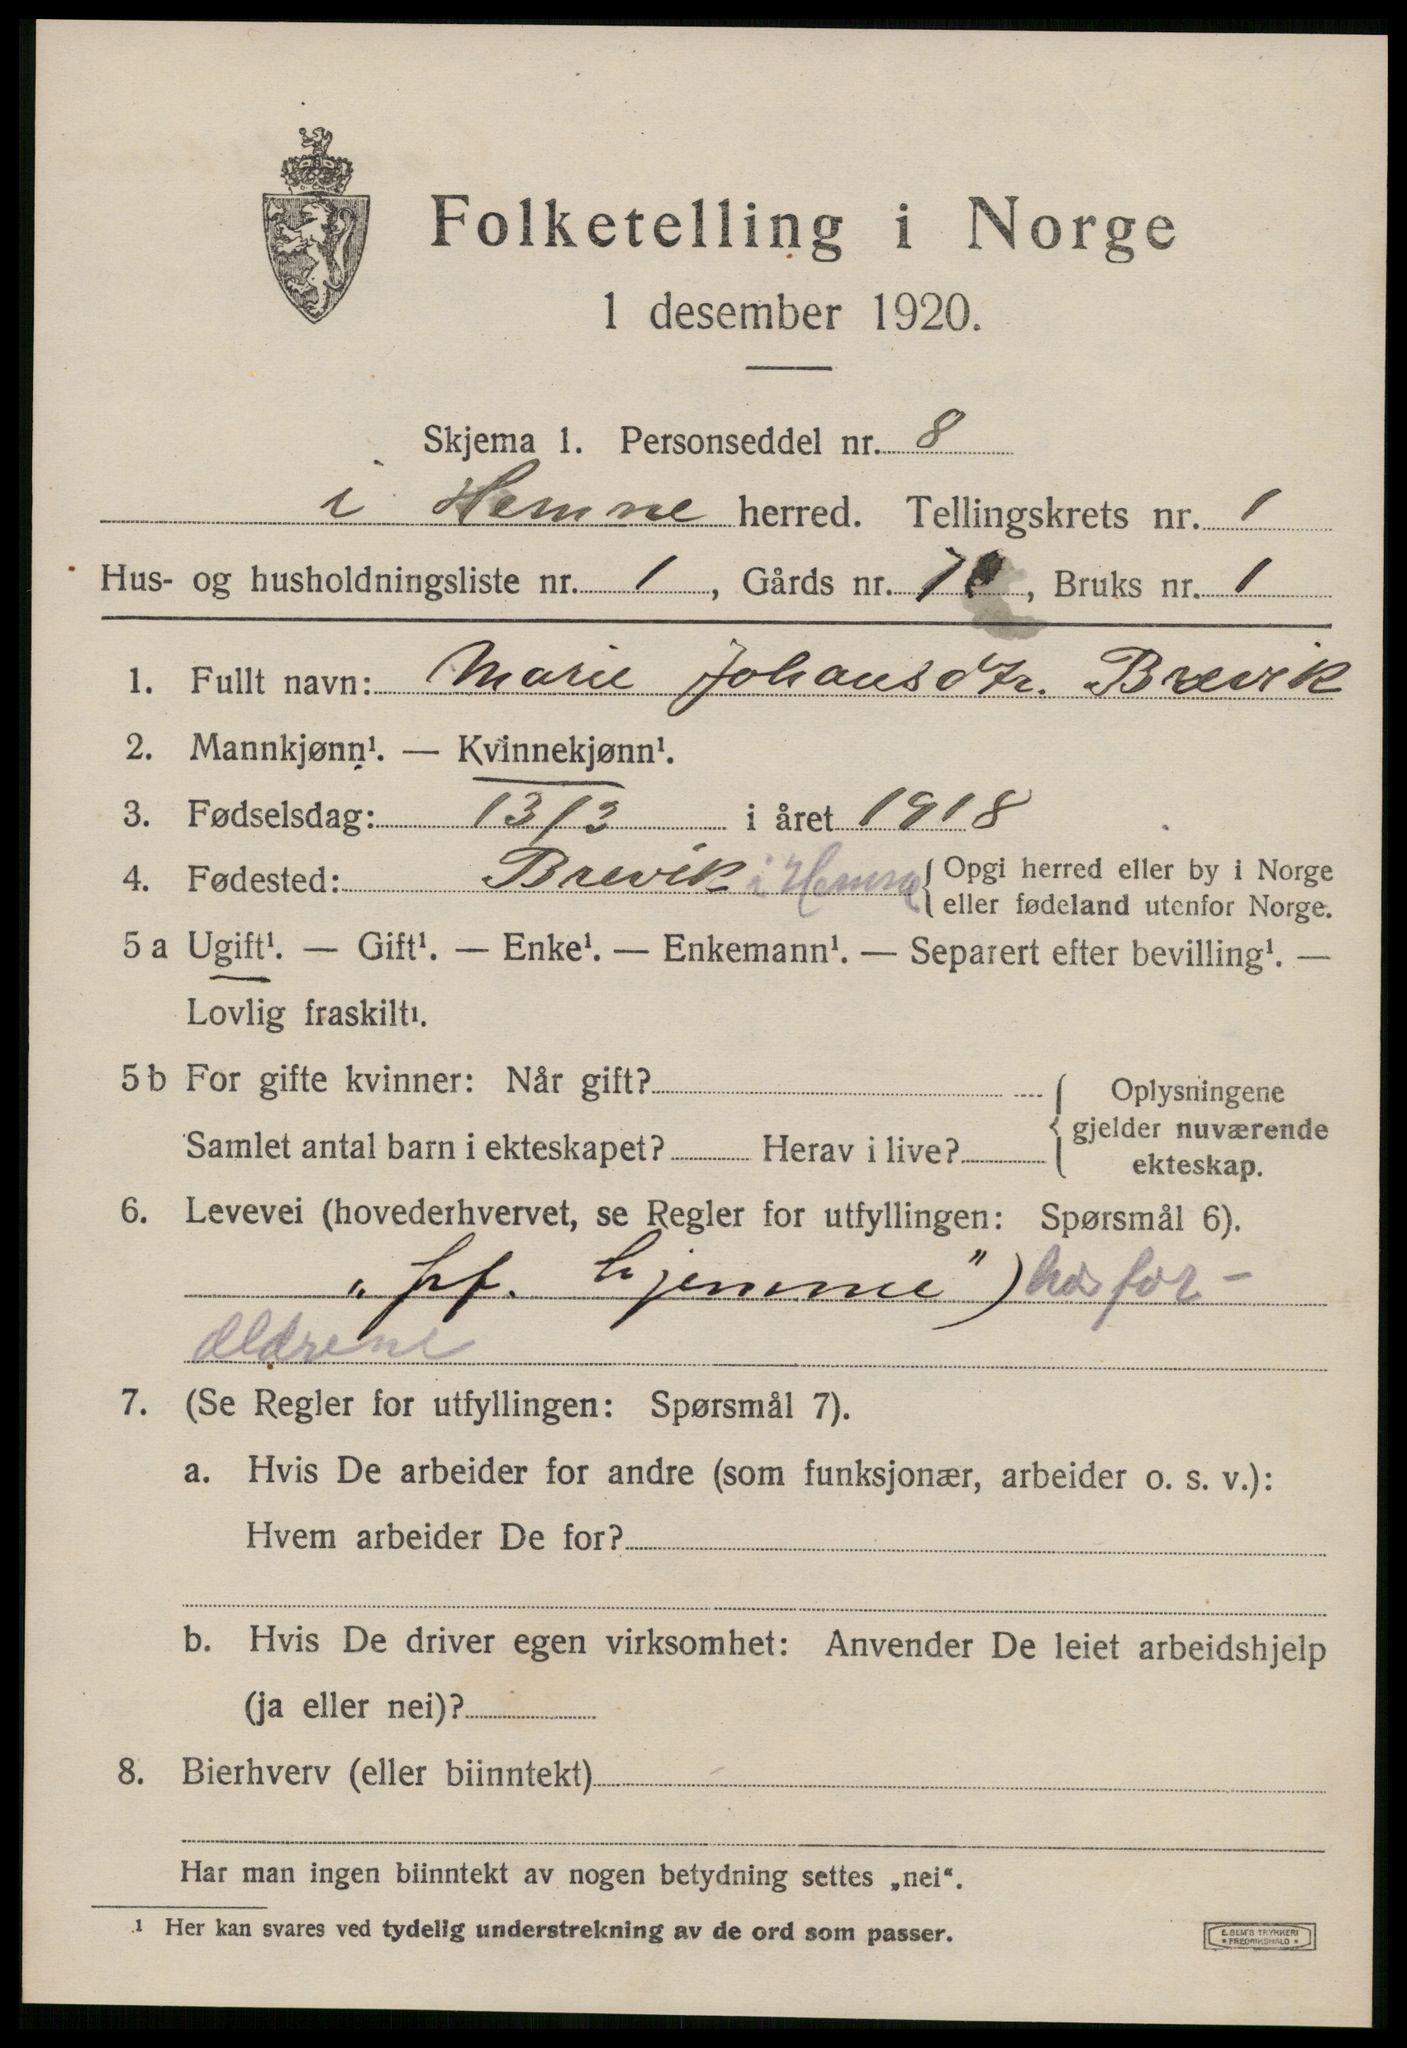 Folketelling i Norge
1 desember 1920.
Skjema 1. Personseddel nr. 8
i Hemne herred. Tellingskrets nr. 1
Hus- og husholdningsliste nr. 1, Gårds nr. , Bruks nr. 1
1. Fullt navn: Marie Johansdtr. Brevik
2. Mannkjønn¹. — Kvinnekjønn¹.
3. Fødselsdag: 13/3 i året 1918
4. Fødested: Brevik i Hemne { Opgi herred eller by i Norge
eller fødeland utenfor Norge.
5 a Ugift¹. — Gift¹. — Enke¹. — Enkemann¹. — Separert efter bevilling¹. —
Lovlig fraskilt¹.
5 b For gifte kvinner: Når gift? { Oplysningene
gjelder nuværende
Samlet antal barn i ekteskapet? Herav i live?
ekteskap.
6. Levevei (hovederhvervet, se Regler for utfyllingen: Spørsmål 6).
„ hjemme") hos for-
ældrene
7. (Se Regler for utfyllingen: Spørsmål 7).
a. Hvis De arbeider for andre (som funksjonær, arbeider o. s. v.):
Hvem arbeider De for?
b. Hvis De driver egen virksomhet: Anvender De leiet arbeidshjelp
(ja eller nei)?
8. Bierhverv (eller biinntekt)
Har man ingen biinntekt av nogen betydning settes „nei“.
¹ Her kan svares ved tydelig understrekning av de ord som passer.
E. SEM'S TRYKKERI
* FREDRIKSHALD *